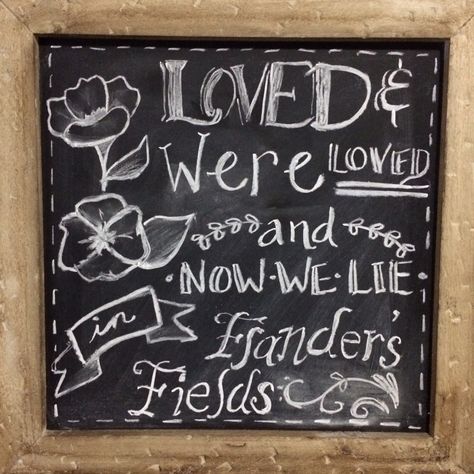 LOVED &
were LOVED
and
·NOW·WE·LIE·
in Flanders'
Fields: